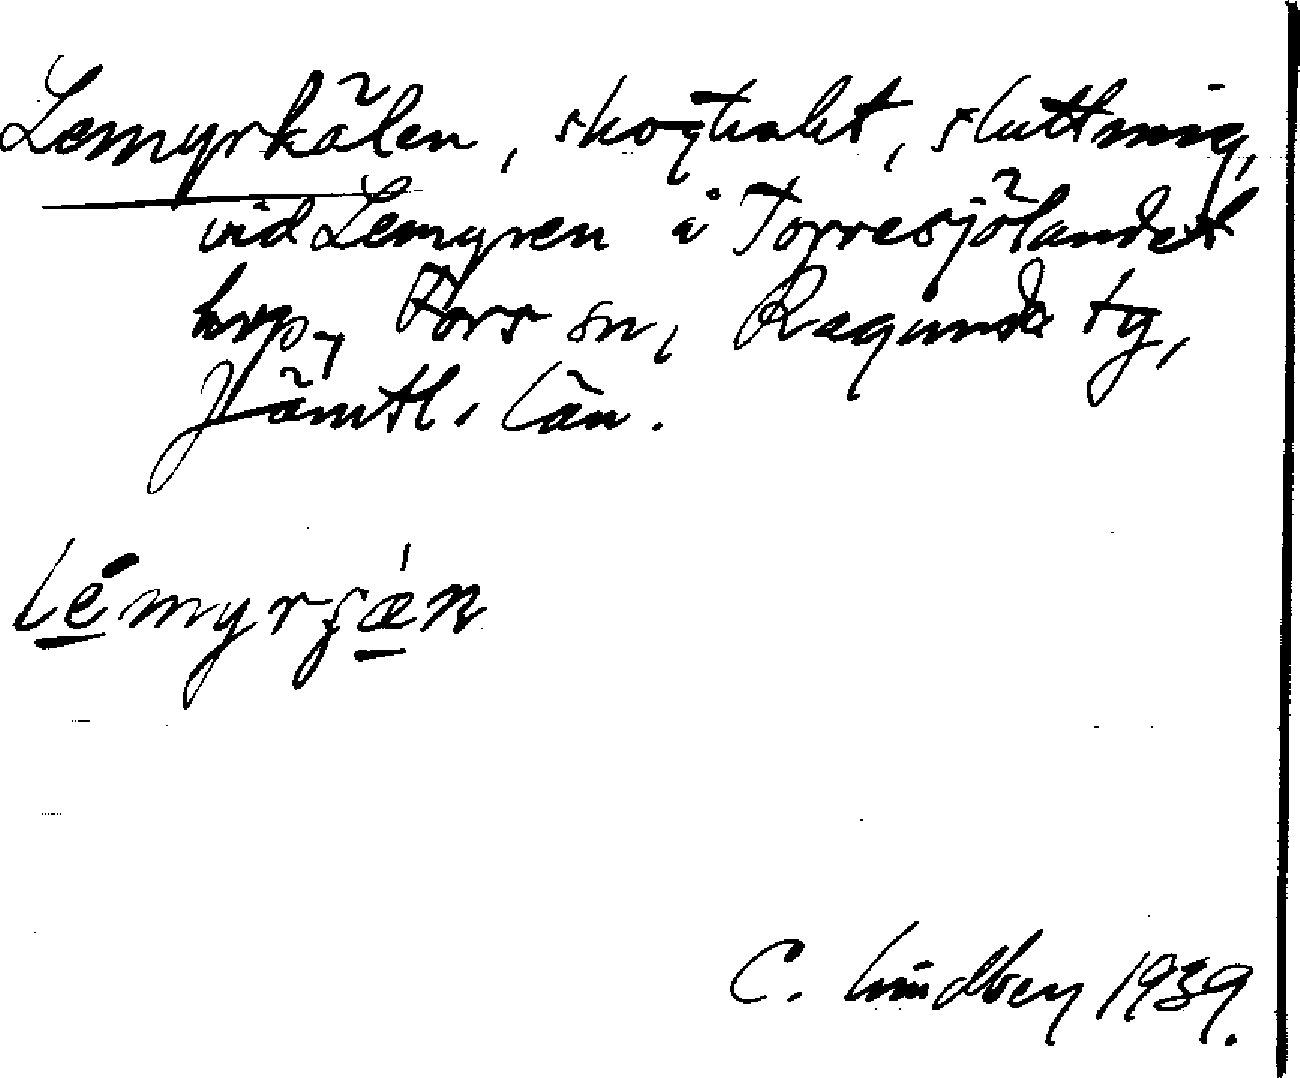 Lemyrkälen, skogtrakt, sluttning,
vid Lemyren i Torresjölandet
hrp, Fors sn, Ragunda tg,
Jämtl. län.
lémyrʂǽn
C. Lindberg 1939.